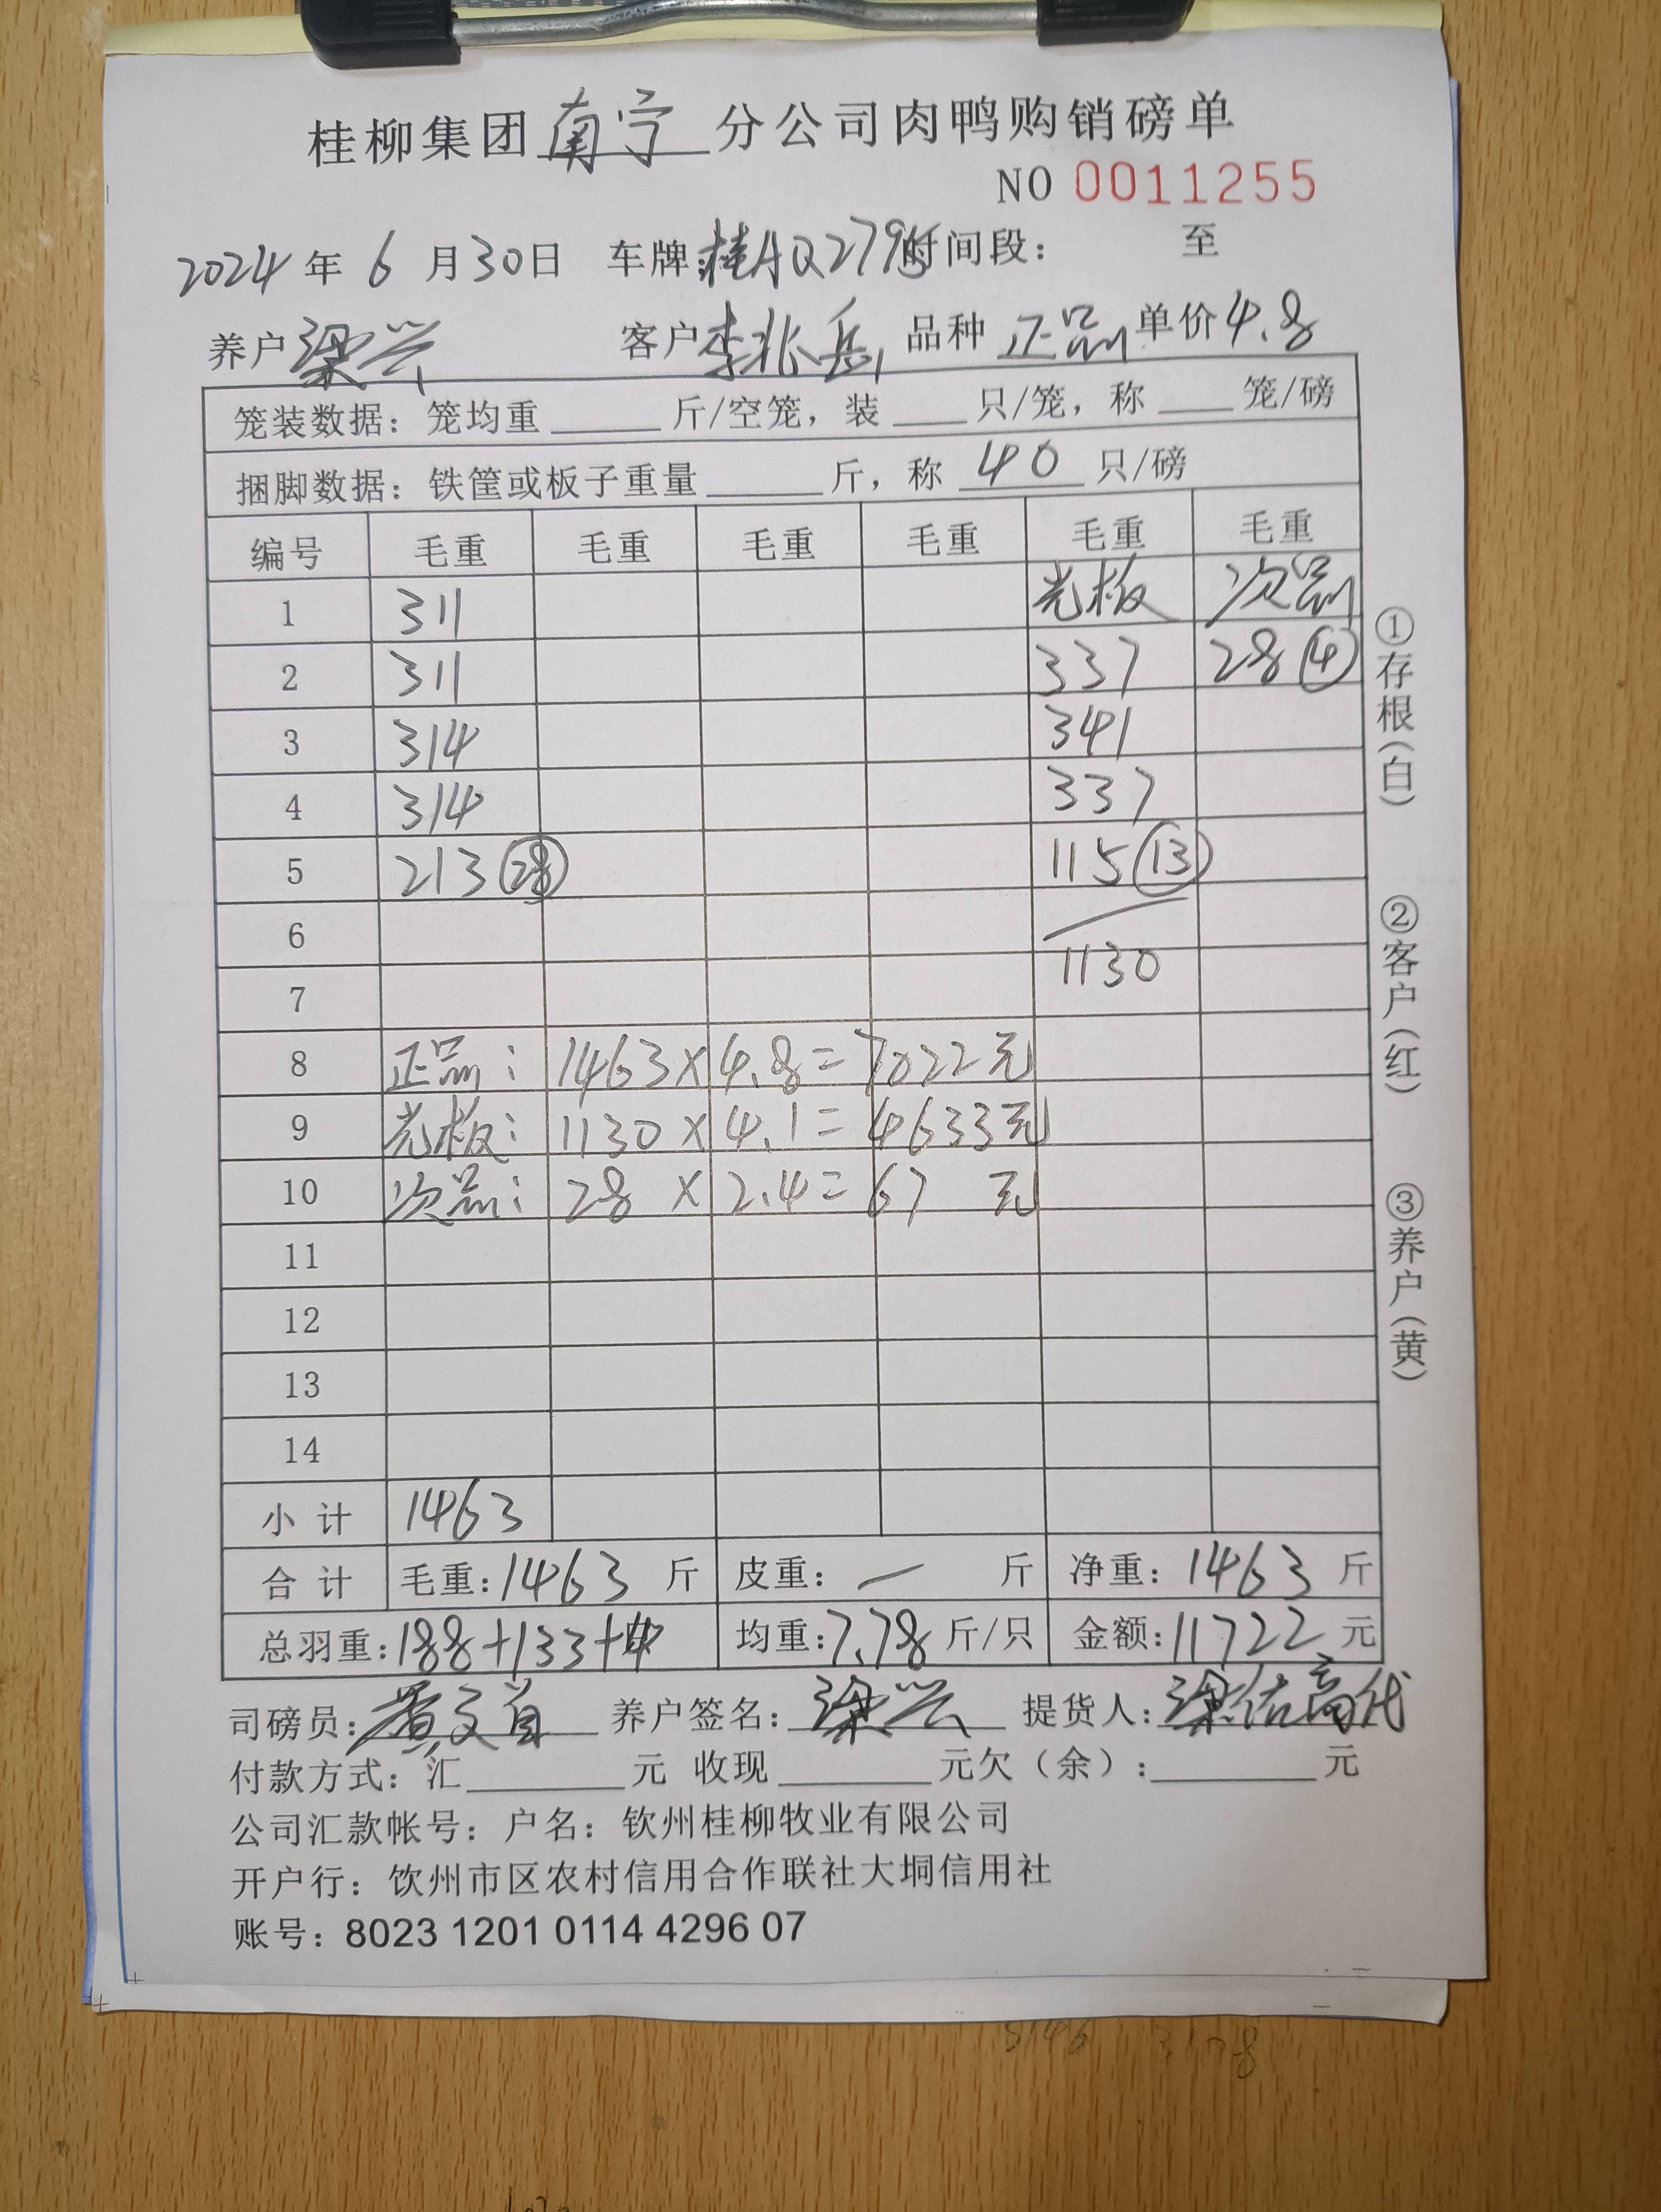 桂柳集团南宁分公司肉鸭购销磅单
NO 0011255
2024年6月30日 车牌:桂AQ279 时间段: 至
养户梁兴 客户李兆岳 品种正品 单价4.8
笼装数据: 笼均重____斤/空笼, 装___只/笼, 称___笼/磅
捆脚数据: 铁筐或板子重量____斤, 称40只/磅
编号 毛重 毛重 毛重 毛重 毛重 毛重
1 311 光板 次品
2 311 337 28④
3 314 341
4 314 337
5 213㉘ 115⑬
6
7 1130
8 正品: 1463×4.8=7022元
9 光板: 1130×4.1=4633元
10 次品: 28×2.4=67元
11
12
13
14
小计 1463
合计 毛重:1463斤 皮重: — 斤 净重:1463斤
总羽重:188+133+4 均重:7.78斤/只 金额:11722元
司磅员: 养户签名:梁兴 提货人:
付款方式: 汇____元 收现____元欠(余):____元
公司汇款帐号: 户名: 钦州桂柳牧业有限公司
开户行: 钦州市区农村信用合作联社大垌信用社
账号: 8023 1201 0114 4296 07
①存根(白) ②客户(红) ③养户(黄)
3146 3178